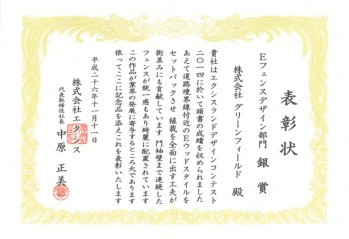 表彰状
Eフェンスデザイン部門 銀賞
株式会社 グリーンフィールド 殿
貴社はエクスランドデザインコンテスト
二〇一四に於いて頭書の成績を収められました
あえて道路境界線付近のEウッドスタイルを
セットバックさせ 植栽を全面に出す工夫が
街並みにも貢献しています 門袖壁まで連続した
フェンスが統一感もあり綺麗に配置されています
この作品が業界の発展に寄与するところ大であります
依ってここに記念品を添えこれを表彰いたします
平成二十六年十一月十一日
株式会社エクシス
代表取締役社長 中原 正美